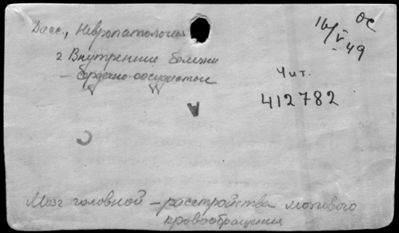 Дисс, Невропатология
16/V 49
ОС
2 Внутренние болезни
– Сердечно-сосудистые
Чит.
412782
А
С
Мозг головной – расстройства мозгового
кровообращения